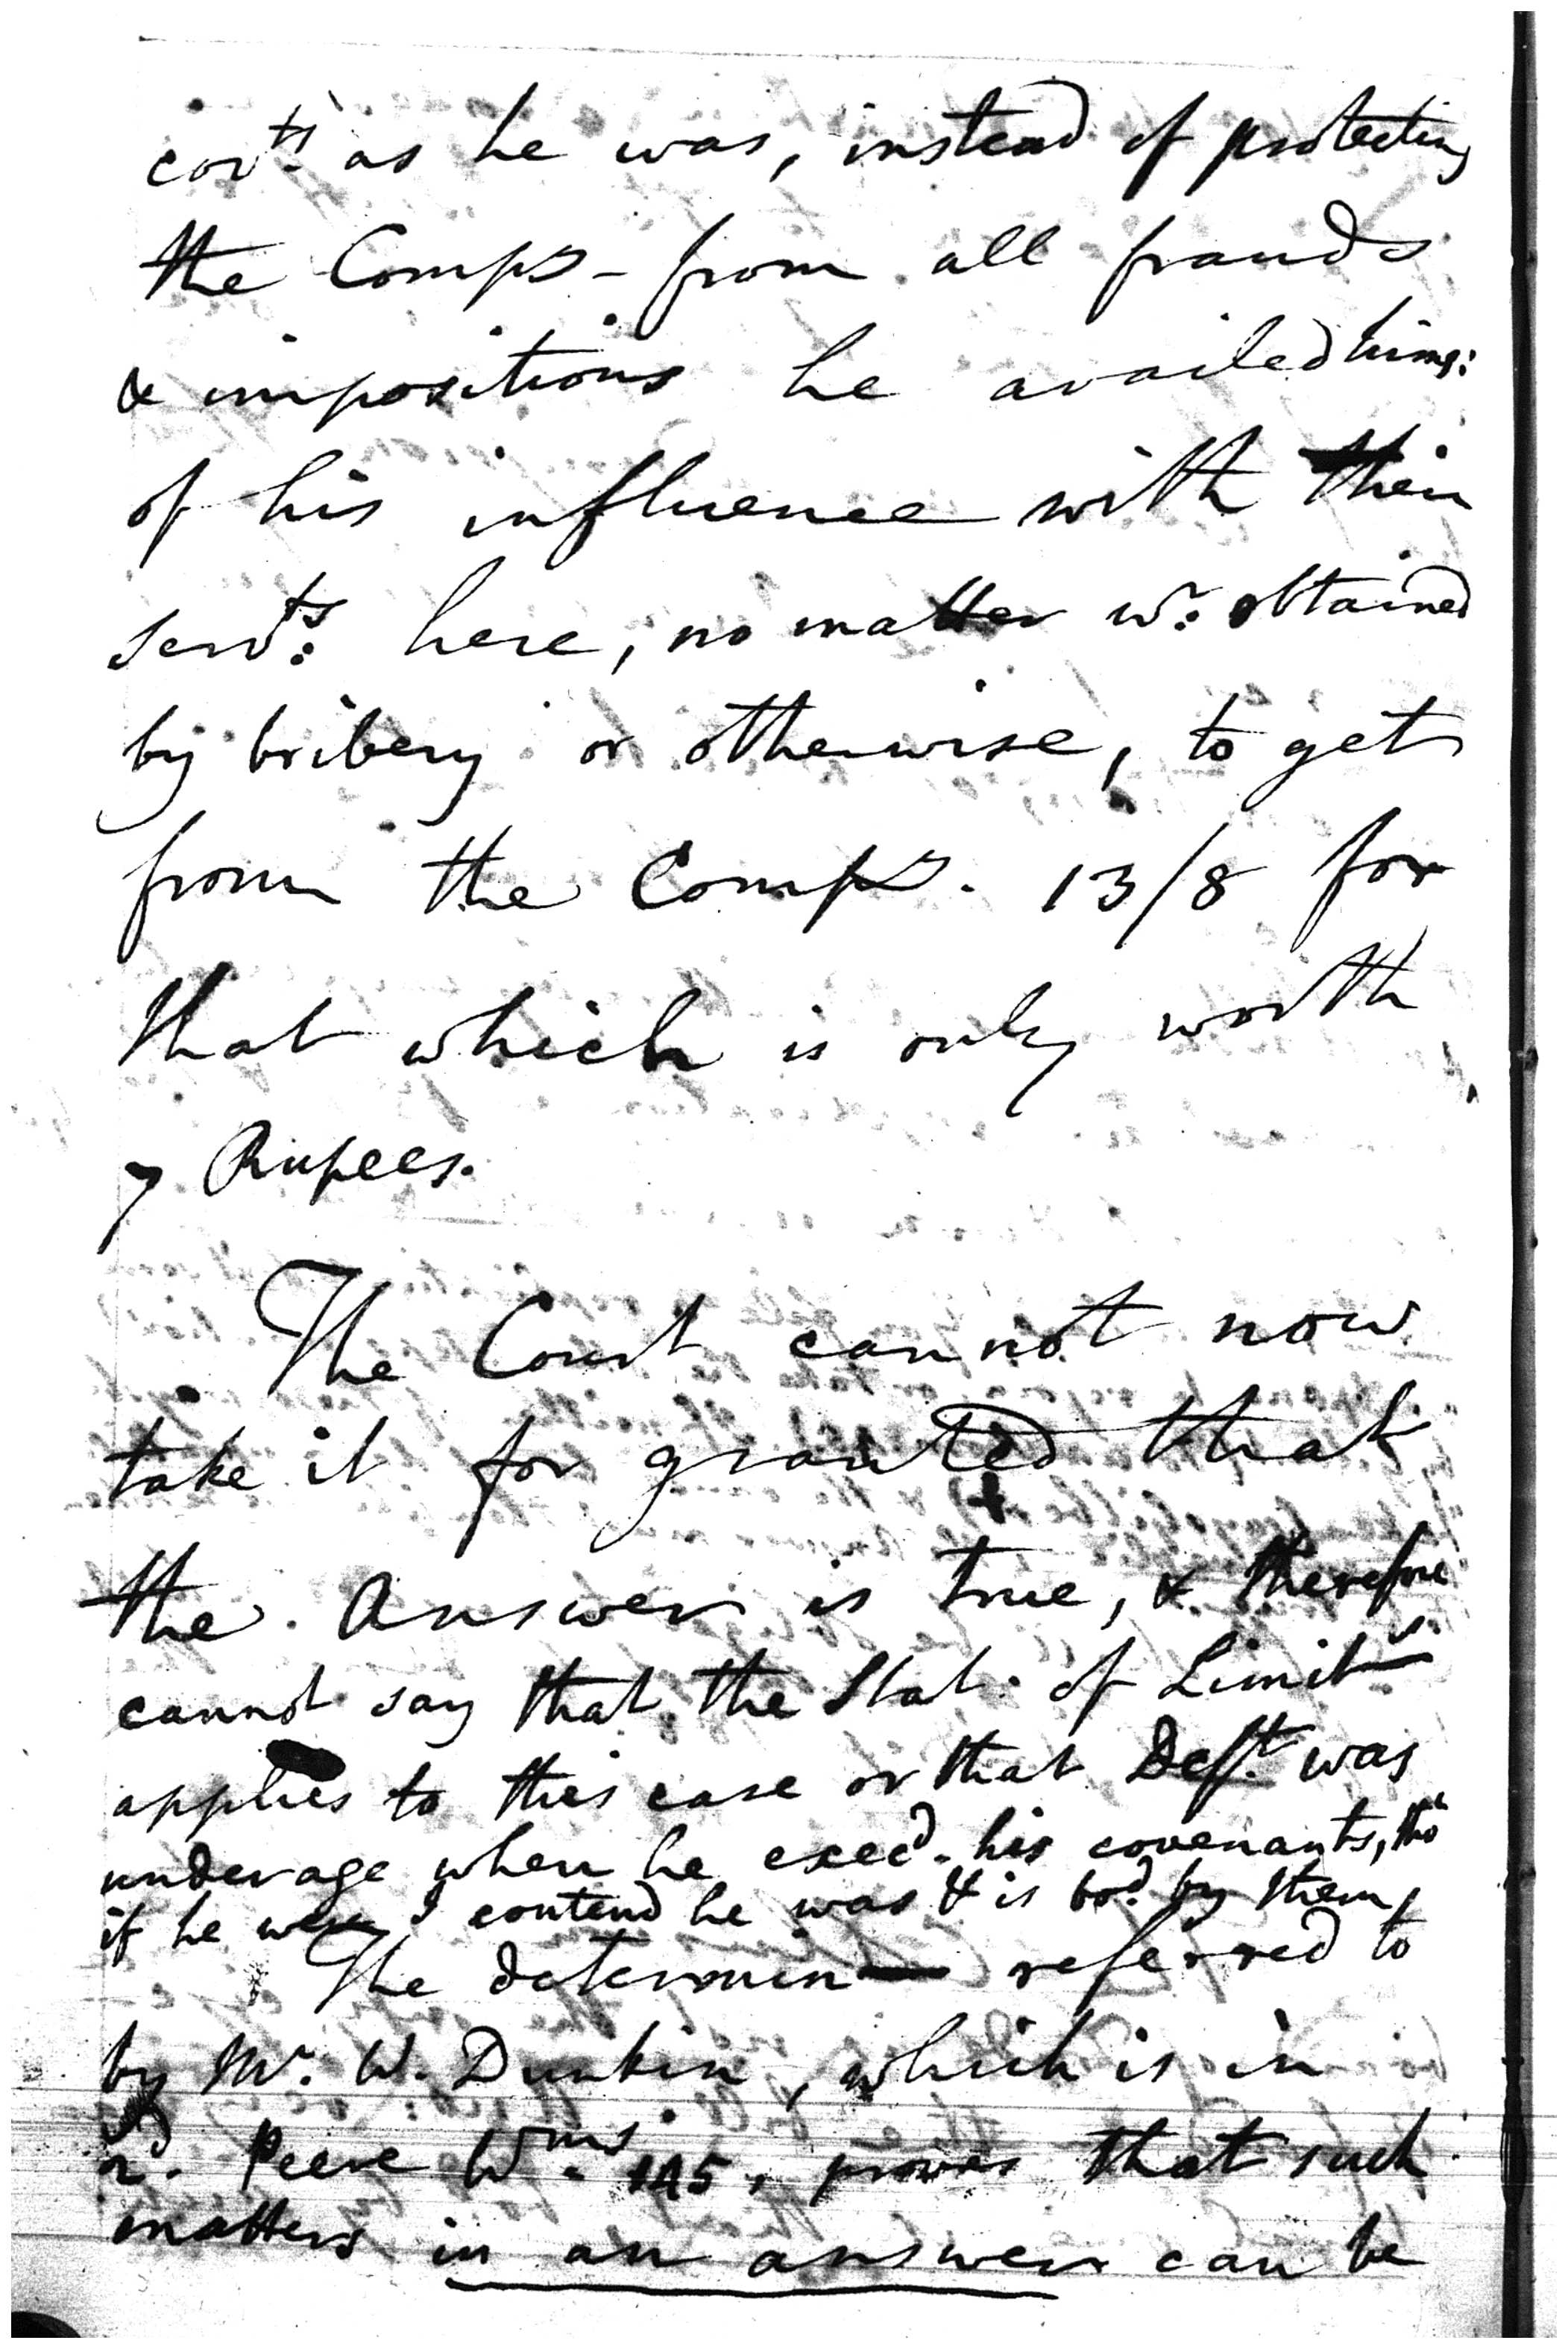 covts. as he was, instead of protecting
the Compy - from all frauds
& impositions he availed hims:
of his influence with their
servts: here, no matter wr: obtained
by bribery or otherwise, to get
from the Compy. 13/8 for
that which is only worth
7 Rupees.
The Court cannot now
take it for granted that
the Answer is true, & therefore
cannot say that the Stat. of Limitns
applies to this case or that Deft. was
underage when he execd. his covenants, tho'
if he were I contend he was & is bod. by them,
The determin— referred to
by Mr. W. Dunkin, which is in
2d. Peere Wms. 145, proves that such
matters in an answer can be